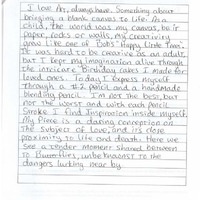 I love Art, always have. Something about
bringing a blank canvas to life. As a
child, the world was my canvas, be it
paper, rocks or walls, my creativity
grew like one of "Bob's" Happy Little Trees".
It was hard to be creative as an adult,
but I kept my imagination alive through
the intricate Birthday cakes I made for
loved ones. Today, I express myself
through a #2 pencil and a handmade
blending pencil. I'm not the best, but
not the worst and with each pencil
stroke I find Inspiration inside myself.
My piece is a daring conception on
the subject of Love, and its close
proximity to life and death. Here we
see a tender moment shared between
to Butterflies, unbeknownst to the
dangers lurking near by.